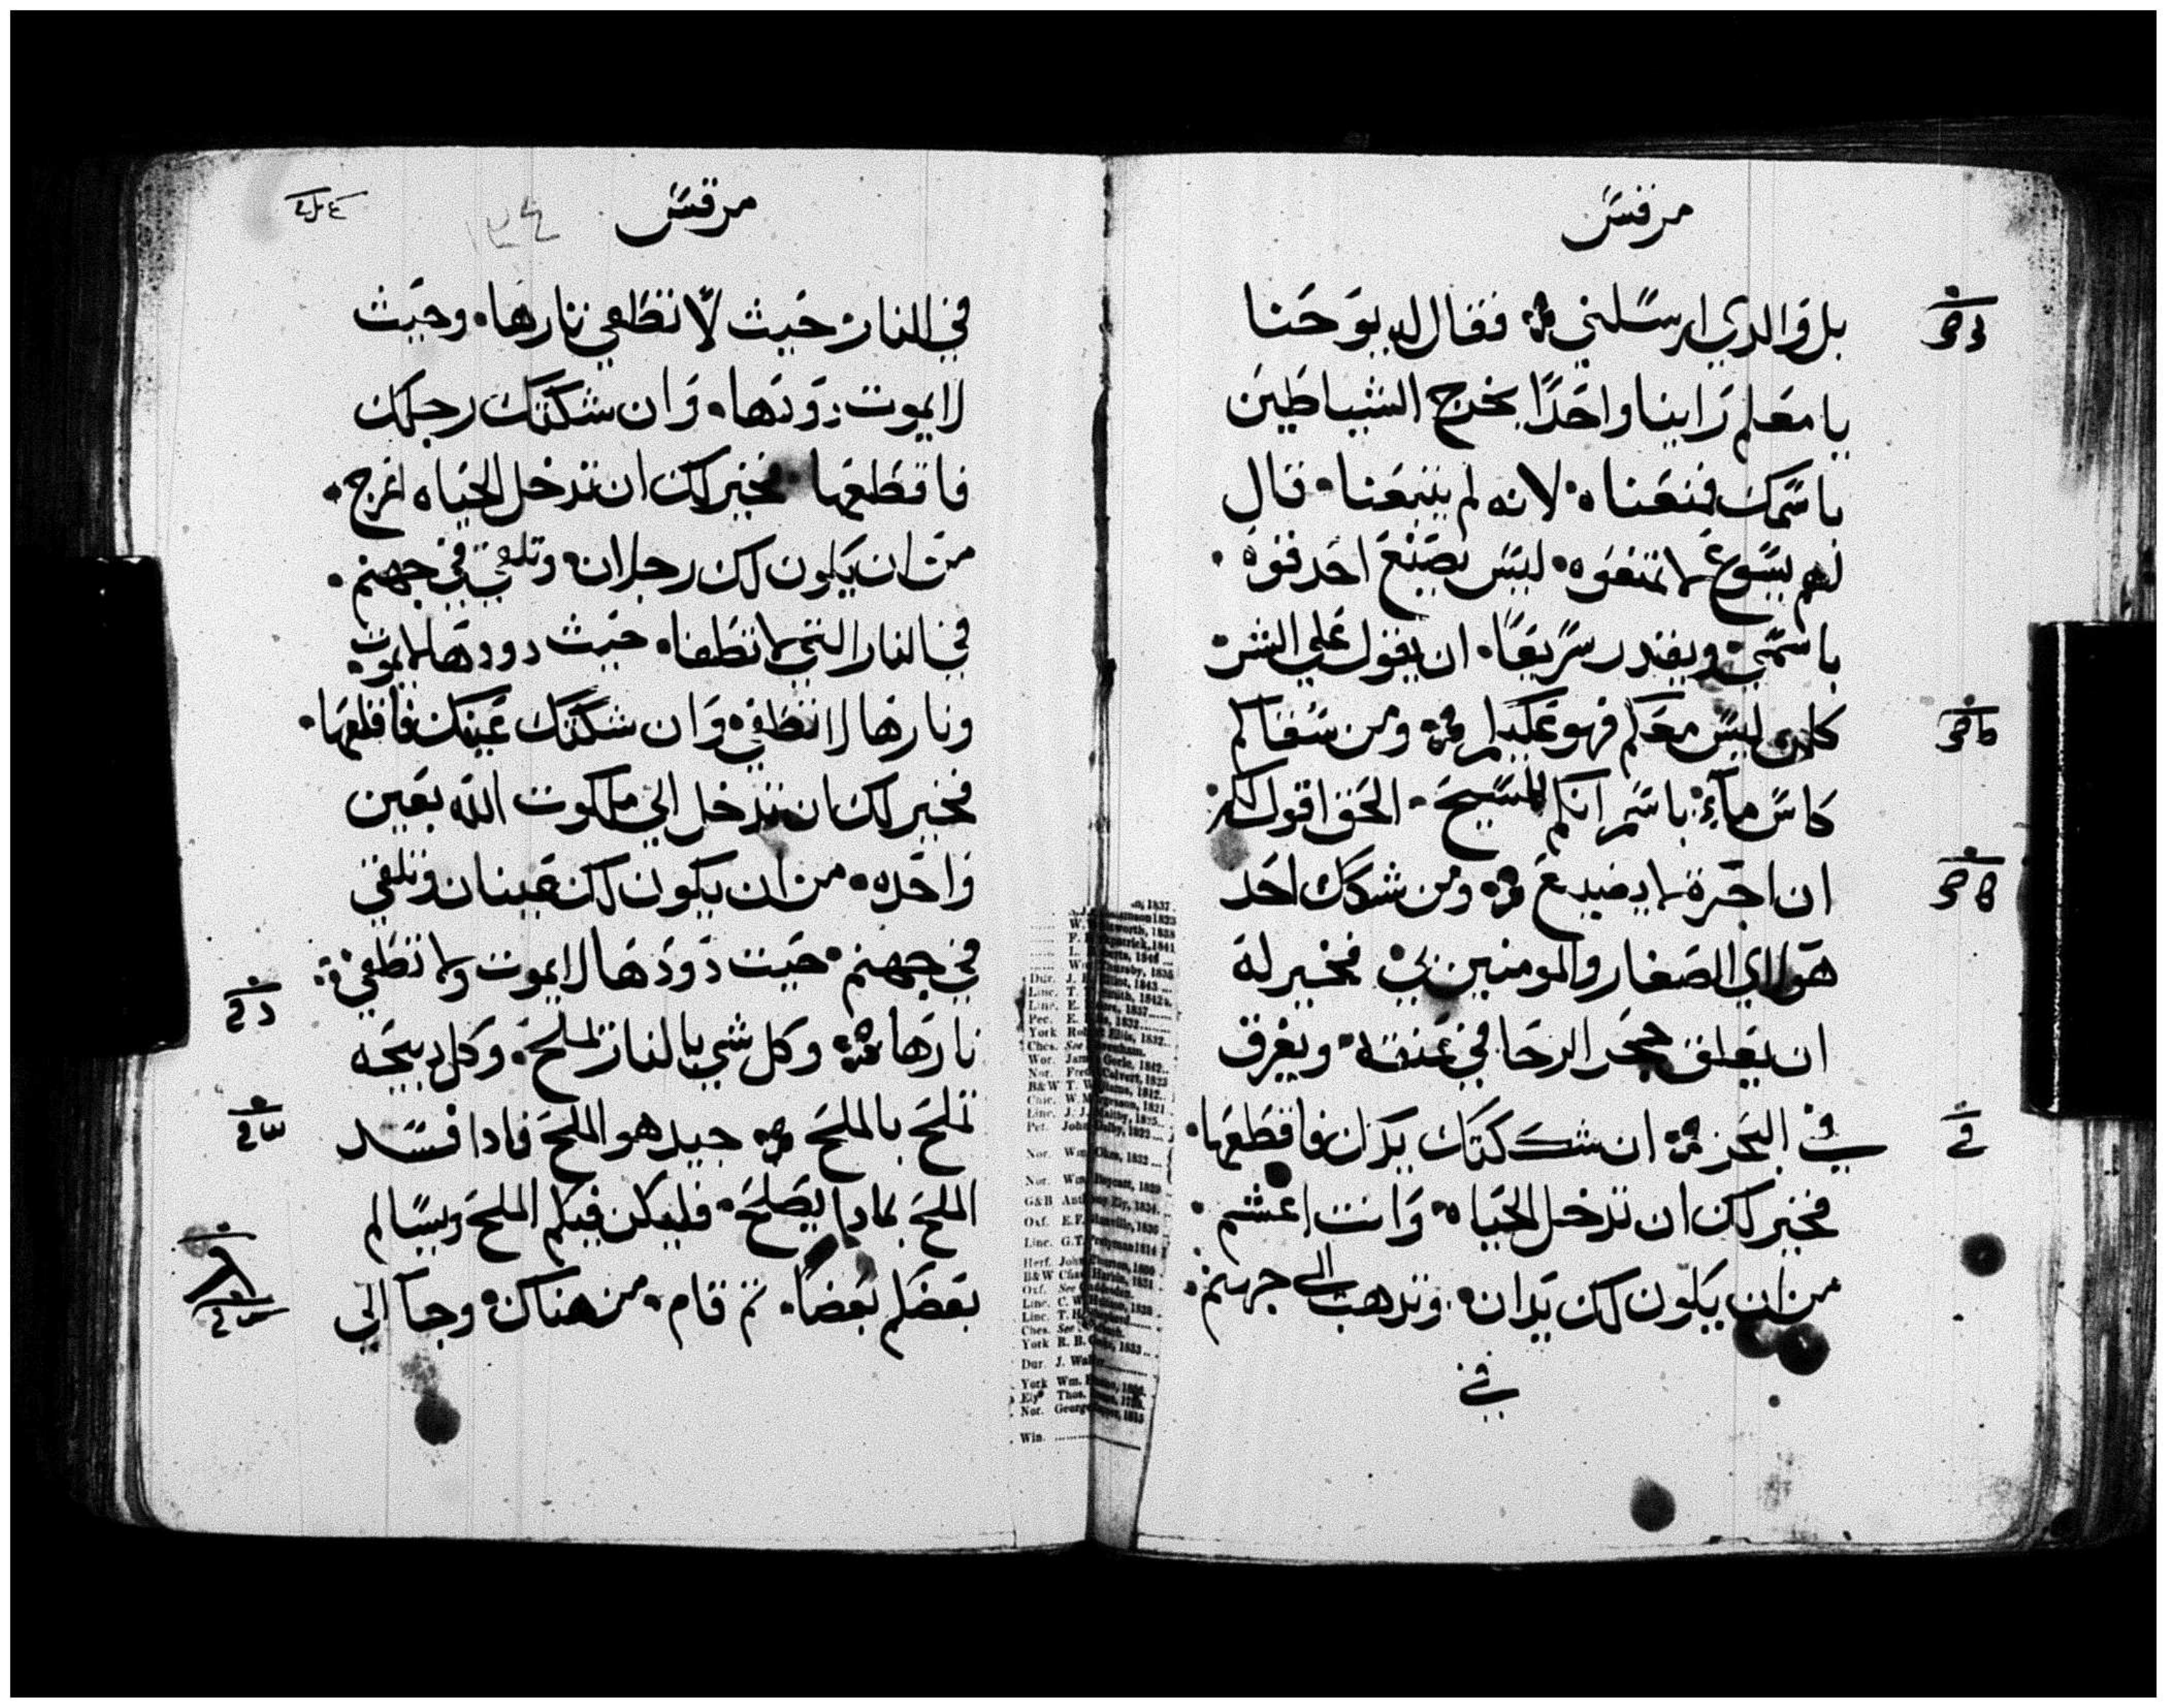 مرقس
بل والدي ارسلني فقال له يوحنا
يا معلم راينا واحدًا يخرج الشياطين
باسمك فمنعناه لانه لم يتبعنا قال
لهم يسوع لا تمنعوه ليس يصنع احد قوه
باسمي ويقدر سريعًا ان يقول علي الشر
كلمن ليس معكم فهو عليكم ومن سقاكم
كاس ماء باسم انكم للمسيح الحق اقول لكم
ان اجرة لا يضيع ومن شكك احد
هولاي الصغار والمومنين بي فخير له
ان يعلق حجر الرحا في عنقه ويغرق
في البحر ان شككتك يدك فاقطعها
فخير لك ان تدخل الحياه وانت اعشم
من ان يكون لك يدان وتدهب الى جهنم
في
مرقس
١٣٤
في النار حيث لا تطفي نارها وحيث
لا يموت دودها وان شككتك رجلك
فاقطعها فخير لك ان تدخل الحياه اعرج
من ان يكون لك رجلان وتلقي في جهنم
في النار التي لا تطفا حيث دودها لا يموت
ونارها لا تطفي وان شككتك عينك فاقلعها
فخير لك ان تدخل الي ملكوت الله بعين
واحده من ان يكون لك عينان وتلقي
في جهنم حيت دودها لا يموت ولا تطفي
نارها وكل شي بالنار تملح وكل دبيحه
تملح بالملح جيد هو الملح فادا فسد
الملح بمادا يصلح فليكن فيكم الملح ويسالم
بعضكم بعضًا تم قام من هناك وجا الي